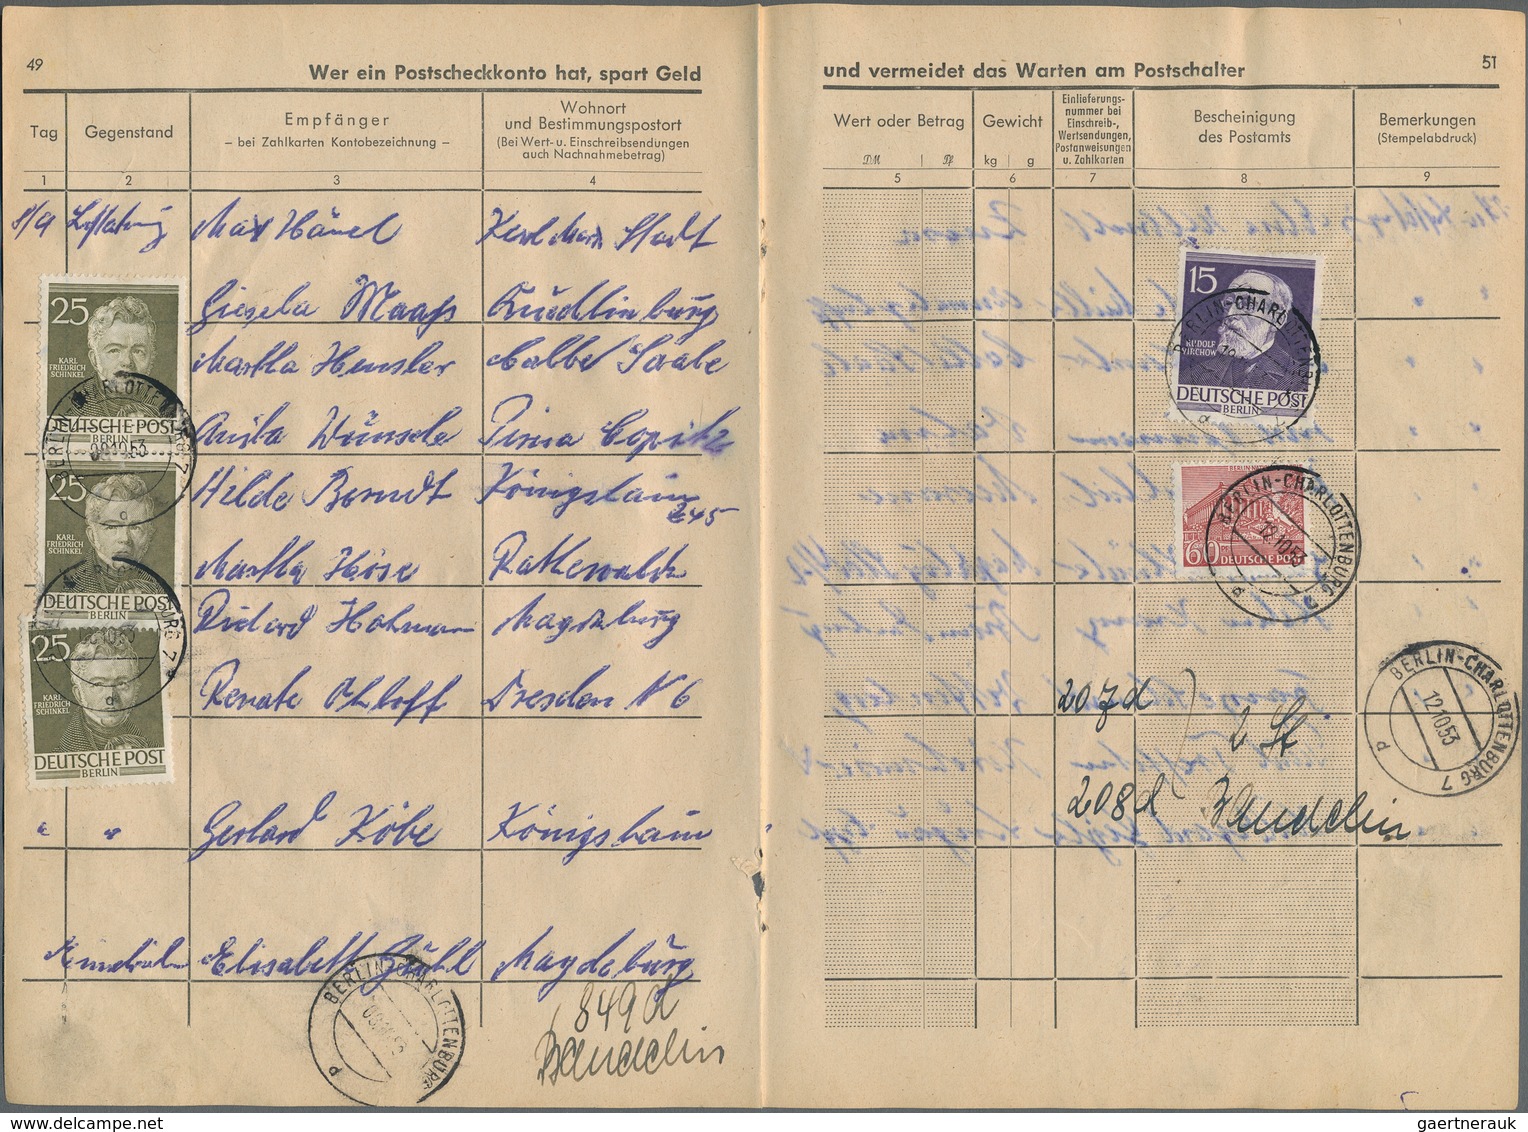 49
Wer ein Postscheckkonto hat, spart Geld
Tag
Gegenstand
Empfänger
– bei Zahlkarten Kontobezeichnung –
Wohnort
und Bestimmungspostort
(Bei Wert- u. Einschreibsendungen
auch Nachnahmebetrag)
1 2 3 4
Max Hänel
Gisela Maass Quedlinburg
25
KARL
FRIEDRICH
SCHINKEL
DEUTSCHE POST
BERLIN
Martha Hensler Calbe Saale
Anita Wünsche Pirna Copitz
Hilde Berndt Königshain
Martha Höse Rathewalde
Richard Hohmann Magdeburg
Renate Ohloff Dresden N 6
Gerhard Köbe Königshain
Elisabeth Magdeburg
25
KARL
FRIEDRICH
SCHINKEL
DEUTSCHE POST
BERLIN
25
KARL
FRIEDRICH
SCHINKEL
DEUTSCHE POST
BERLIN
BERLIN-CHARLOTTENBURG
849d
Bandelin
und vermeidet das Warten am Postschalter
51
Wert oder Betrag
DM Pf
Gewicht
kg g
Einlieferungs-
nummer bei
Einschreib-,
Wertsendungen,
Postanweisungen
u. Zahlkarten
Bescheinigung
des Postamts
Bemerkungen
(Stempelabdruck)
5 6 7 8 9
15
RUDOLF
VIRCHOW
DEUTSCHE POST
BERLIN
BERLIN-CHARLOTTENBURG
60
DEUTSCHE POST
BERLIN-CHARLOTTENBURG
12.10.53
207d
2 St
208d
Bandelin
BERLIN-CHARLOTTENBURG 7
12.10.53
gaertnerauk